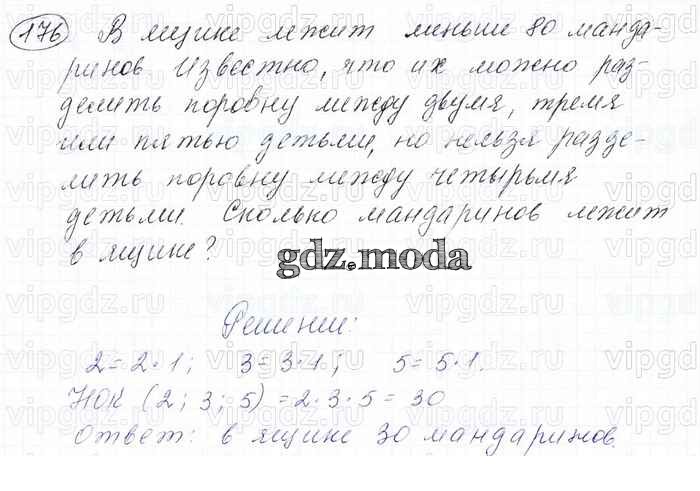 176 В ящике лежит меньше 80 манда-
ринов. Известно, что их можно раз-
делить поровну между двумя, тремя
или пятью детьми, но нельзя разде-
лить поровну между четырьмя
детьми. Сколько мандаринов лежит
в ящике?
gdz.moda
Решение:
2 = 2 · 1; 3 = 3 · 1; 5 = 5 · 1.
НОК (2; 3; 5) = 2 · 3 · 5 = 30
Ответ: в ящике 30 мандаринов.